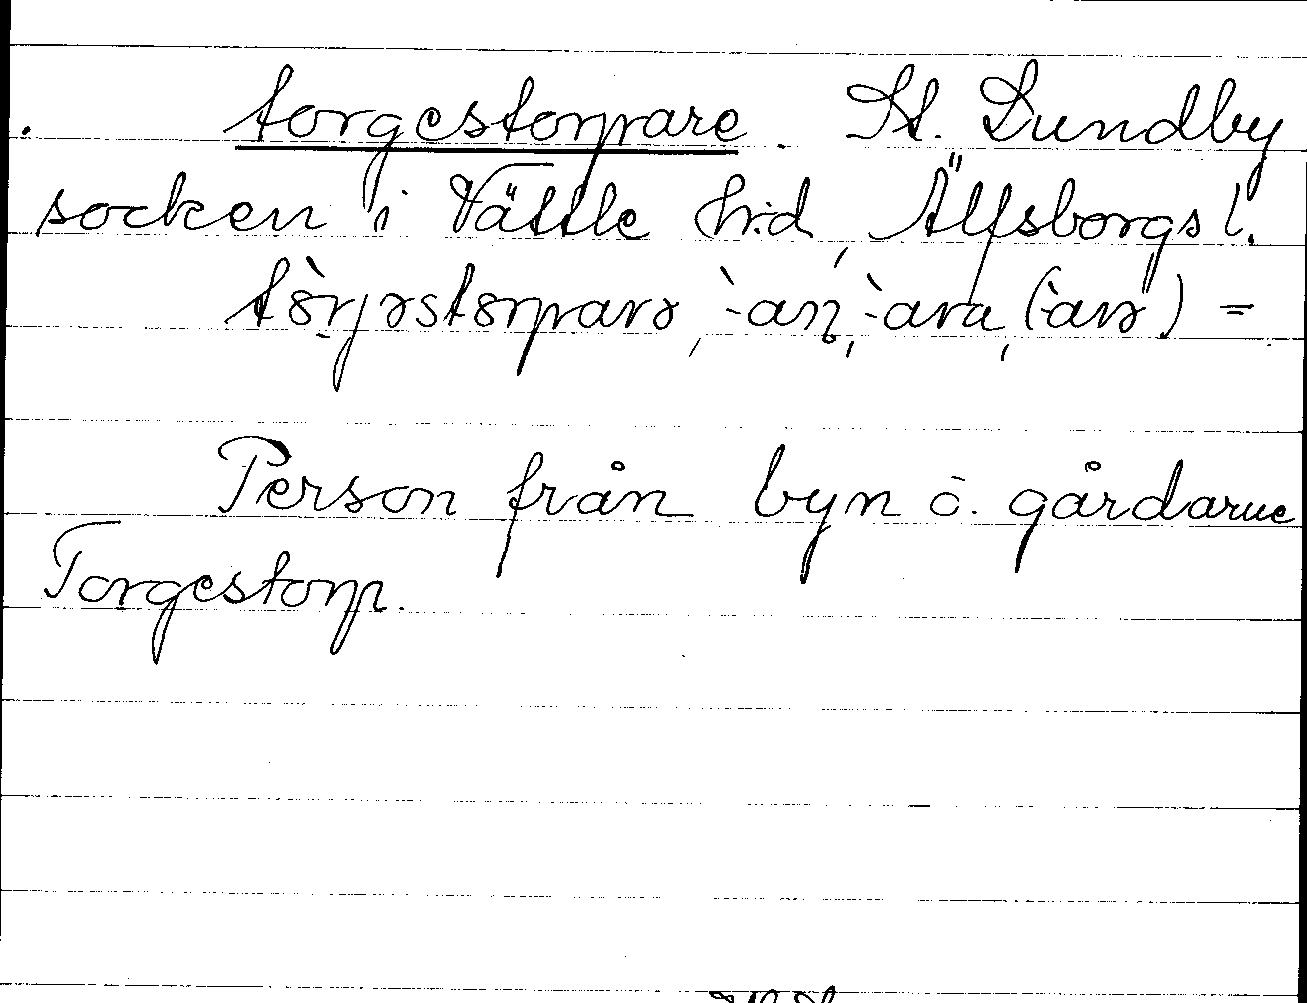 torgestorpare. St. Lundby
socken i Vättle h:d, Älfsborgs l.
tòrjəstorparə, -̀an, -̀ara, (-̀arə) =
Person från byn o. gårdarne
Torgestorp.